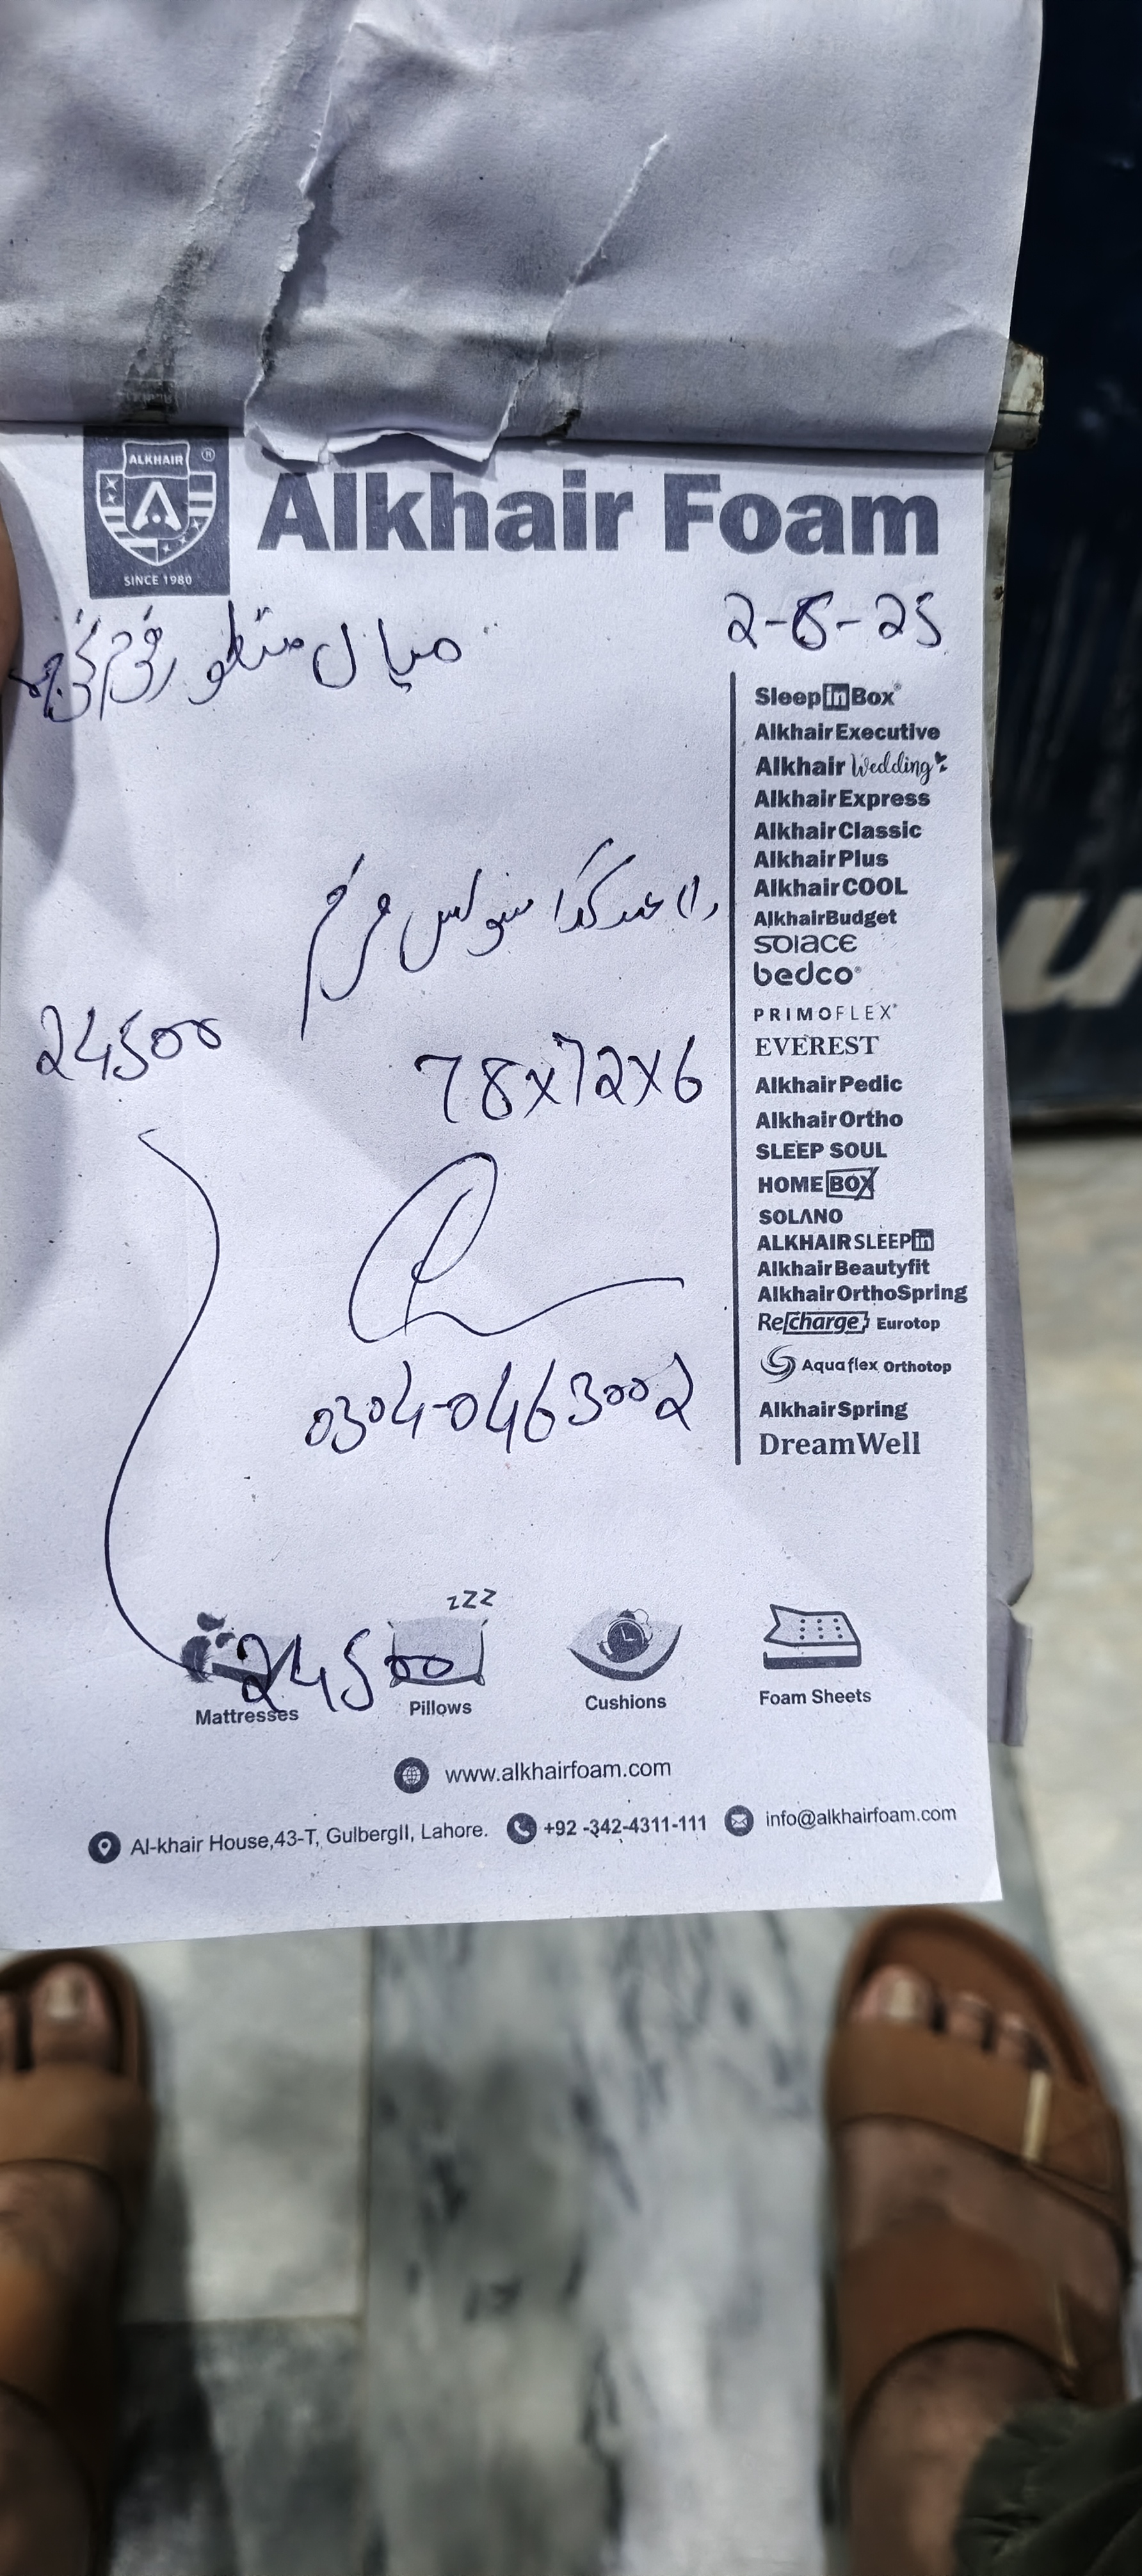 ALKHAIR ®
SINCE 1980
Alkhair Foam
2-8-25
میاں منظور
SleepinBox®
Alkhair Executive
Alkhair Wedding
Alkhair Express
Alkhair Classic
Alkhair Plus
Alkhair COOL
Alkhair Budget
SOLACE
bedco®
PRIMOFLEX®
EVEREST
Alkhair Pedic
Alkhair Ortho
SLEEP SOUL
HOME BOX
SOLANO
ALKHAIR SLEEPin
Alkhair Beautyfit
Alkhair OrthoSpring
Recharge Eurotop
Aquaflex Orthotop
Alkhair Spring
DreamWell
24500
78x72x6
0304-0463002
zzz
24500
Mattresses
Pillows
Cushions
Foam Sheets
www.alkhairfoam.com
Al-khair House,43-T, GulbergII, Lahore.
+92 -342-4311-111
info@alkhairfoam.com